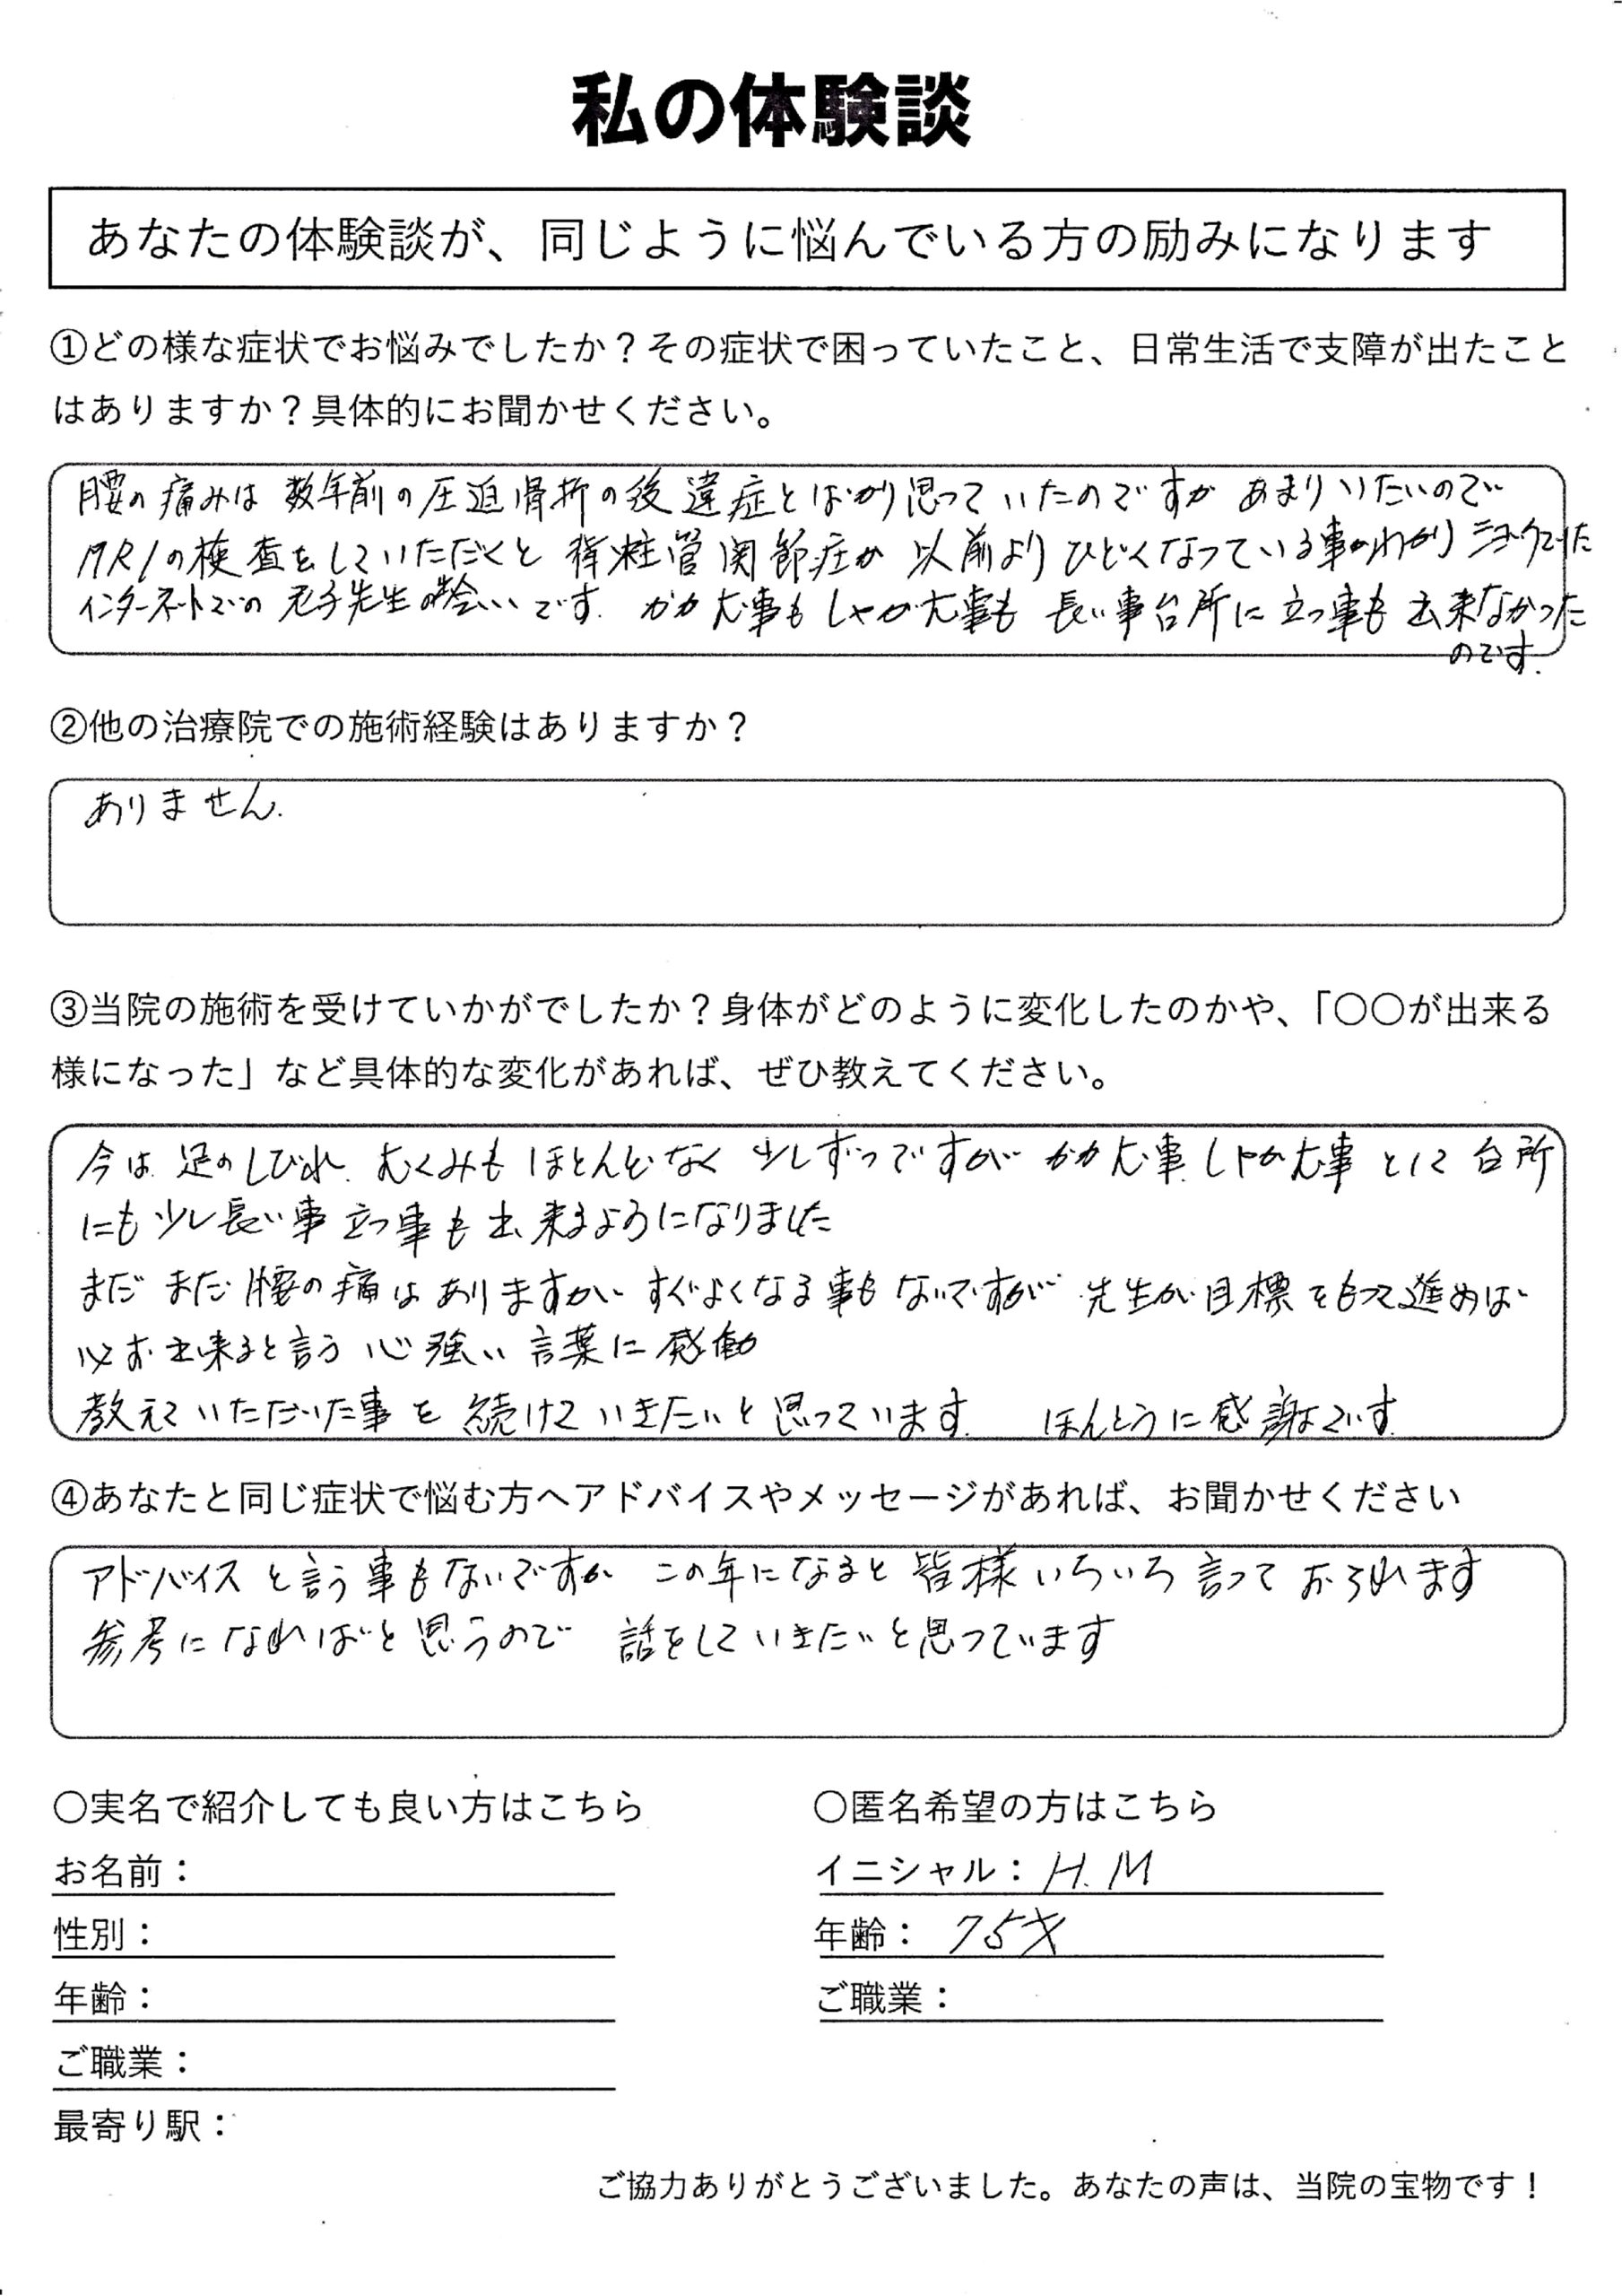 私の体験談
あなたの体験談が、同じように悩んでいる方の励みになります
①どの様な症状でお悩みでしたか？その症状で困っていたこと、日常生活で支障が出たこと
はありますか？具体的にお聞かせください。
腰の痛みは 数年前の圧迫骨折の後遺症とばかり思って いたのですが あまりいたいので
MRIの検査をしていただくと 脊柱管関節症が 以前より ひどくなっている事がわかり ショックでした
インターネットでの 先生の出会いです. かがむ事も しゃがむ事も 長い事台所に 立つ事も 出来なかった
のです.
②他の治療院での施術経験はありますか？
ありません.
③当院の施術を受けていかがでしたか？身体がどのように変化したのかや、「〇〇が出来る
様になった」など具体的な変化があれば、ぜひ教えてください。
今は 足のしびれ. むくみも ほとんどなく 少しずつですが かがむ事. しゃがむ事 とくに 台所
にも少し長い事 立つ事も 出来るようになりました
まだ まだ 腰の痛はありますが すぐよくなる事も ないですが 先生が目標をもって進めば
必ず出来ると言う 心強い 言葉に 感動
教えていただいた事を 続けて いきたいと思っています. ほんとうに感謝です.
④あなたと同じ症状で悩む方へアドバイスやメッセージがあれば、お聞かせください
アドバイスと言う事もないですが この年になると 皆様いろいろ 言って おられます
参考になればと思うので 話をしていきたいと思っています
〇実名で紹介しても良い方はこちら
お名前：
性別：
年齢：
ご職業：
最寄り駅：
〇匿名希望の方はこちら
イニシャル：H.M
年齢： 75才
ご職業：
ご協力ありがとうございました。あなたの声は、当院の宝物です！